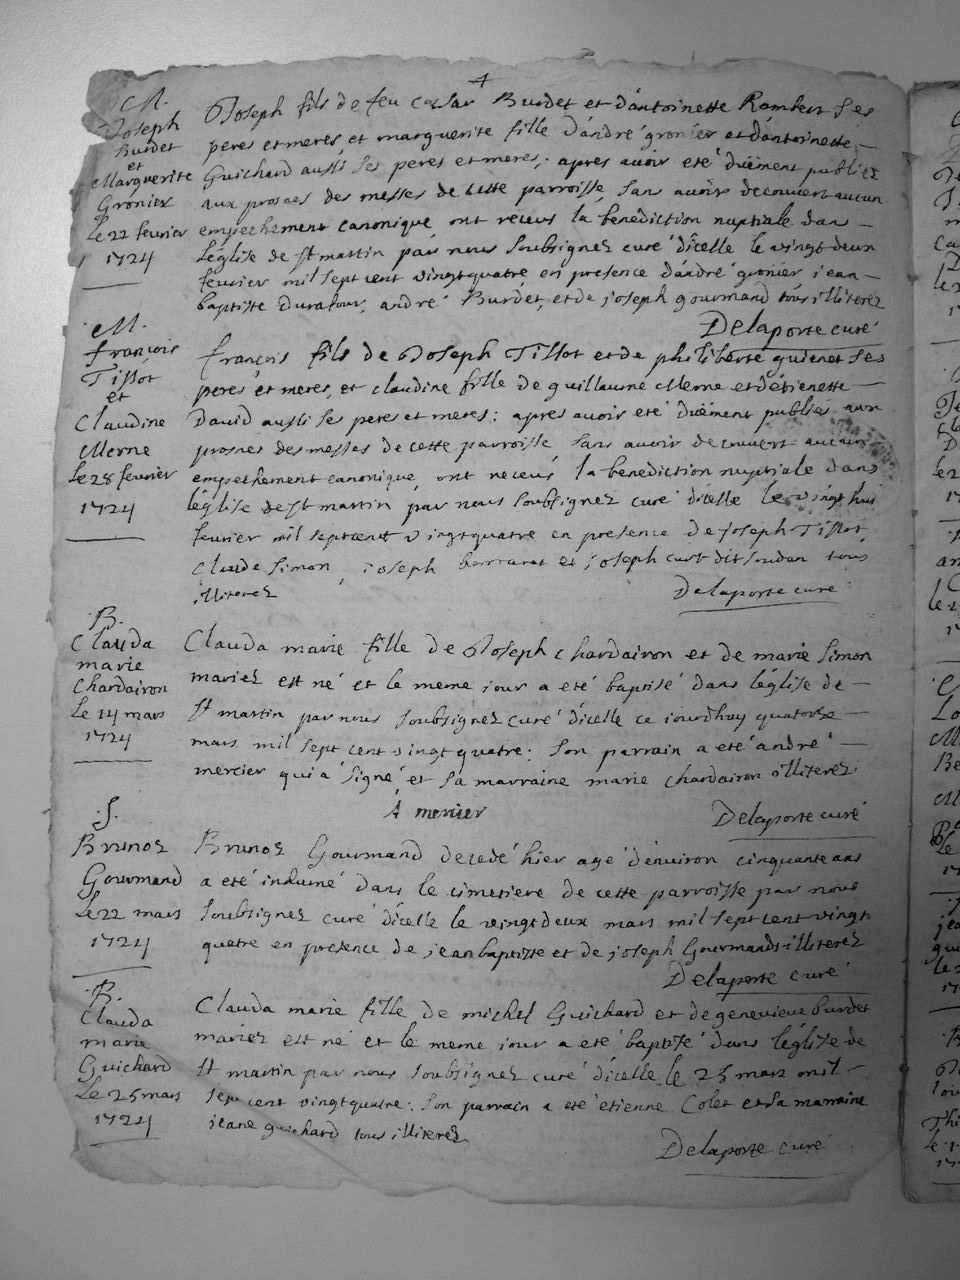 4
M.
Joseph
Burdet
et
Marguerite
Gronier
Le 22 fevrier
1724
Joseph fils de feu cæsar Burdet et d'antoinette Rambert ses
peres et meres, et marguerite fille d'andré gronier et d'antoinette
Guichard aussi ses peres et meres; apres avoir eté düement publiez
aux prosnes des messes de cette parroisse sans avoir decouvert aucun
empechement canonique ont receus la benediction nuptiale dans
l'église de st martin par nous soubsignez curé d'icelle le vingt deux
fevrier mil sept cent vingt quatre en presence d'andré gronier jean
baptiste duratour, andré Burdet, et de joseph gourmand tous illiterez
Delaporte curé
M.
françois
Tissot
et
Claudine
Merne
Le 28 fevrier
1724
françois fils de Joseph Tissot et de philiberte guienet ses
peres et meres, et claudine fille de guillaume Merne et d'étienette
David aussi ses peres et meres: apres avoir eté düement publiés aux
prosnes des messes de cette parroisse sans avoir decouvert aucun
empechement canonique, ont receus la benediction nuptiale dans
l'église de st martin par nous soubsignez curé d'icelle le vingt huit
fevrier mil sept cent vingt quatre en presence de Joseph Tissot,
claude simon, joseph et joseph curt dit soudan tous
illiterez
Delaporte curé
B.
Clauda
marie
Chardairon
Le 14 mars
1724
Clauda marie fille de Joseph chardairon et de marie simon
mariez est né et le meme jour a eté baptisé dans l'église de
st martin par nous soubsignez curé d'icelle ce jourdhuy quatorze
mars mil sept cent vingt quatre: son parrain a eté andré
mercier qui a signé et sa marraine marie chardairon illiterez
A mercier
Delaporte curé
S.
Brunoz
Gourmand
Le 22 mars
1724
Brunoz Gourmand decedé hier agé d'environ cinquante ans
a eté inhumé dans le cimetiere de cette parroisse par nous
soubsignez curé d'icelle le vingt deux mars mil sept cent vingt
quatre en presence de jean baptiste et de joseph Gourmands illiterez
Delaporte curé
B.
Clauda
marie
Guichard
Le 25 mars
1724
Clauda marie fille de michel Guichard et de genevieve burdet
mariez est né et le meme jour a eté baptisé dans l'église de
st martin par nous soubsignez curé d'icelle le 25 mars mil
sept cent vingt quatre: son parrain a eté etienne Colet et sa marraine
jeane guichard tous illiterez
Delaporte curé